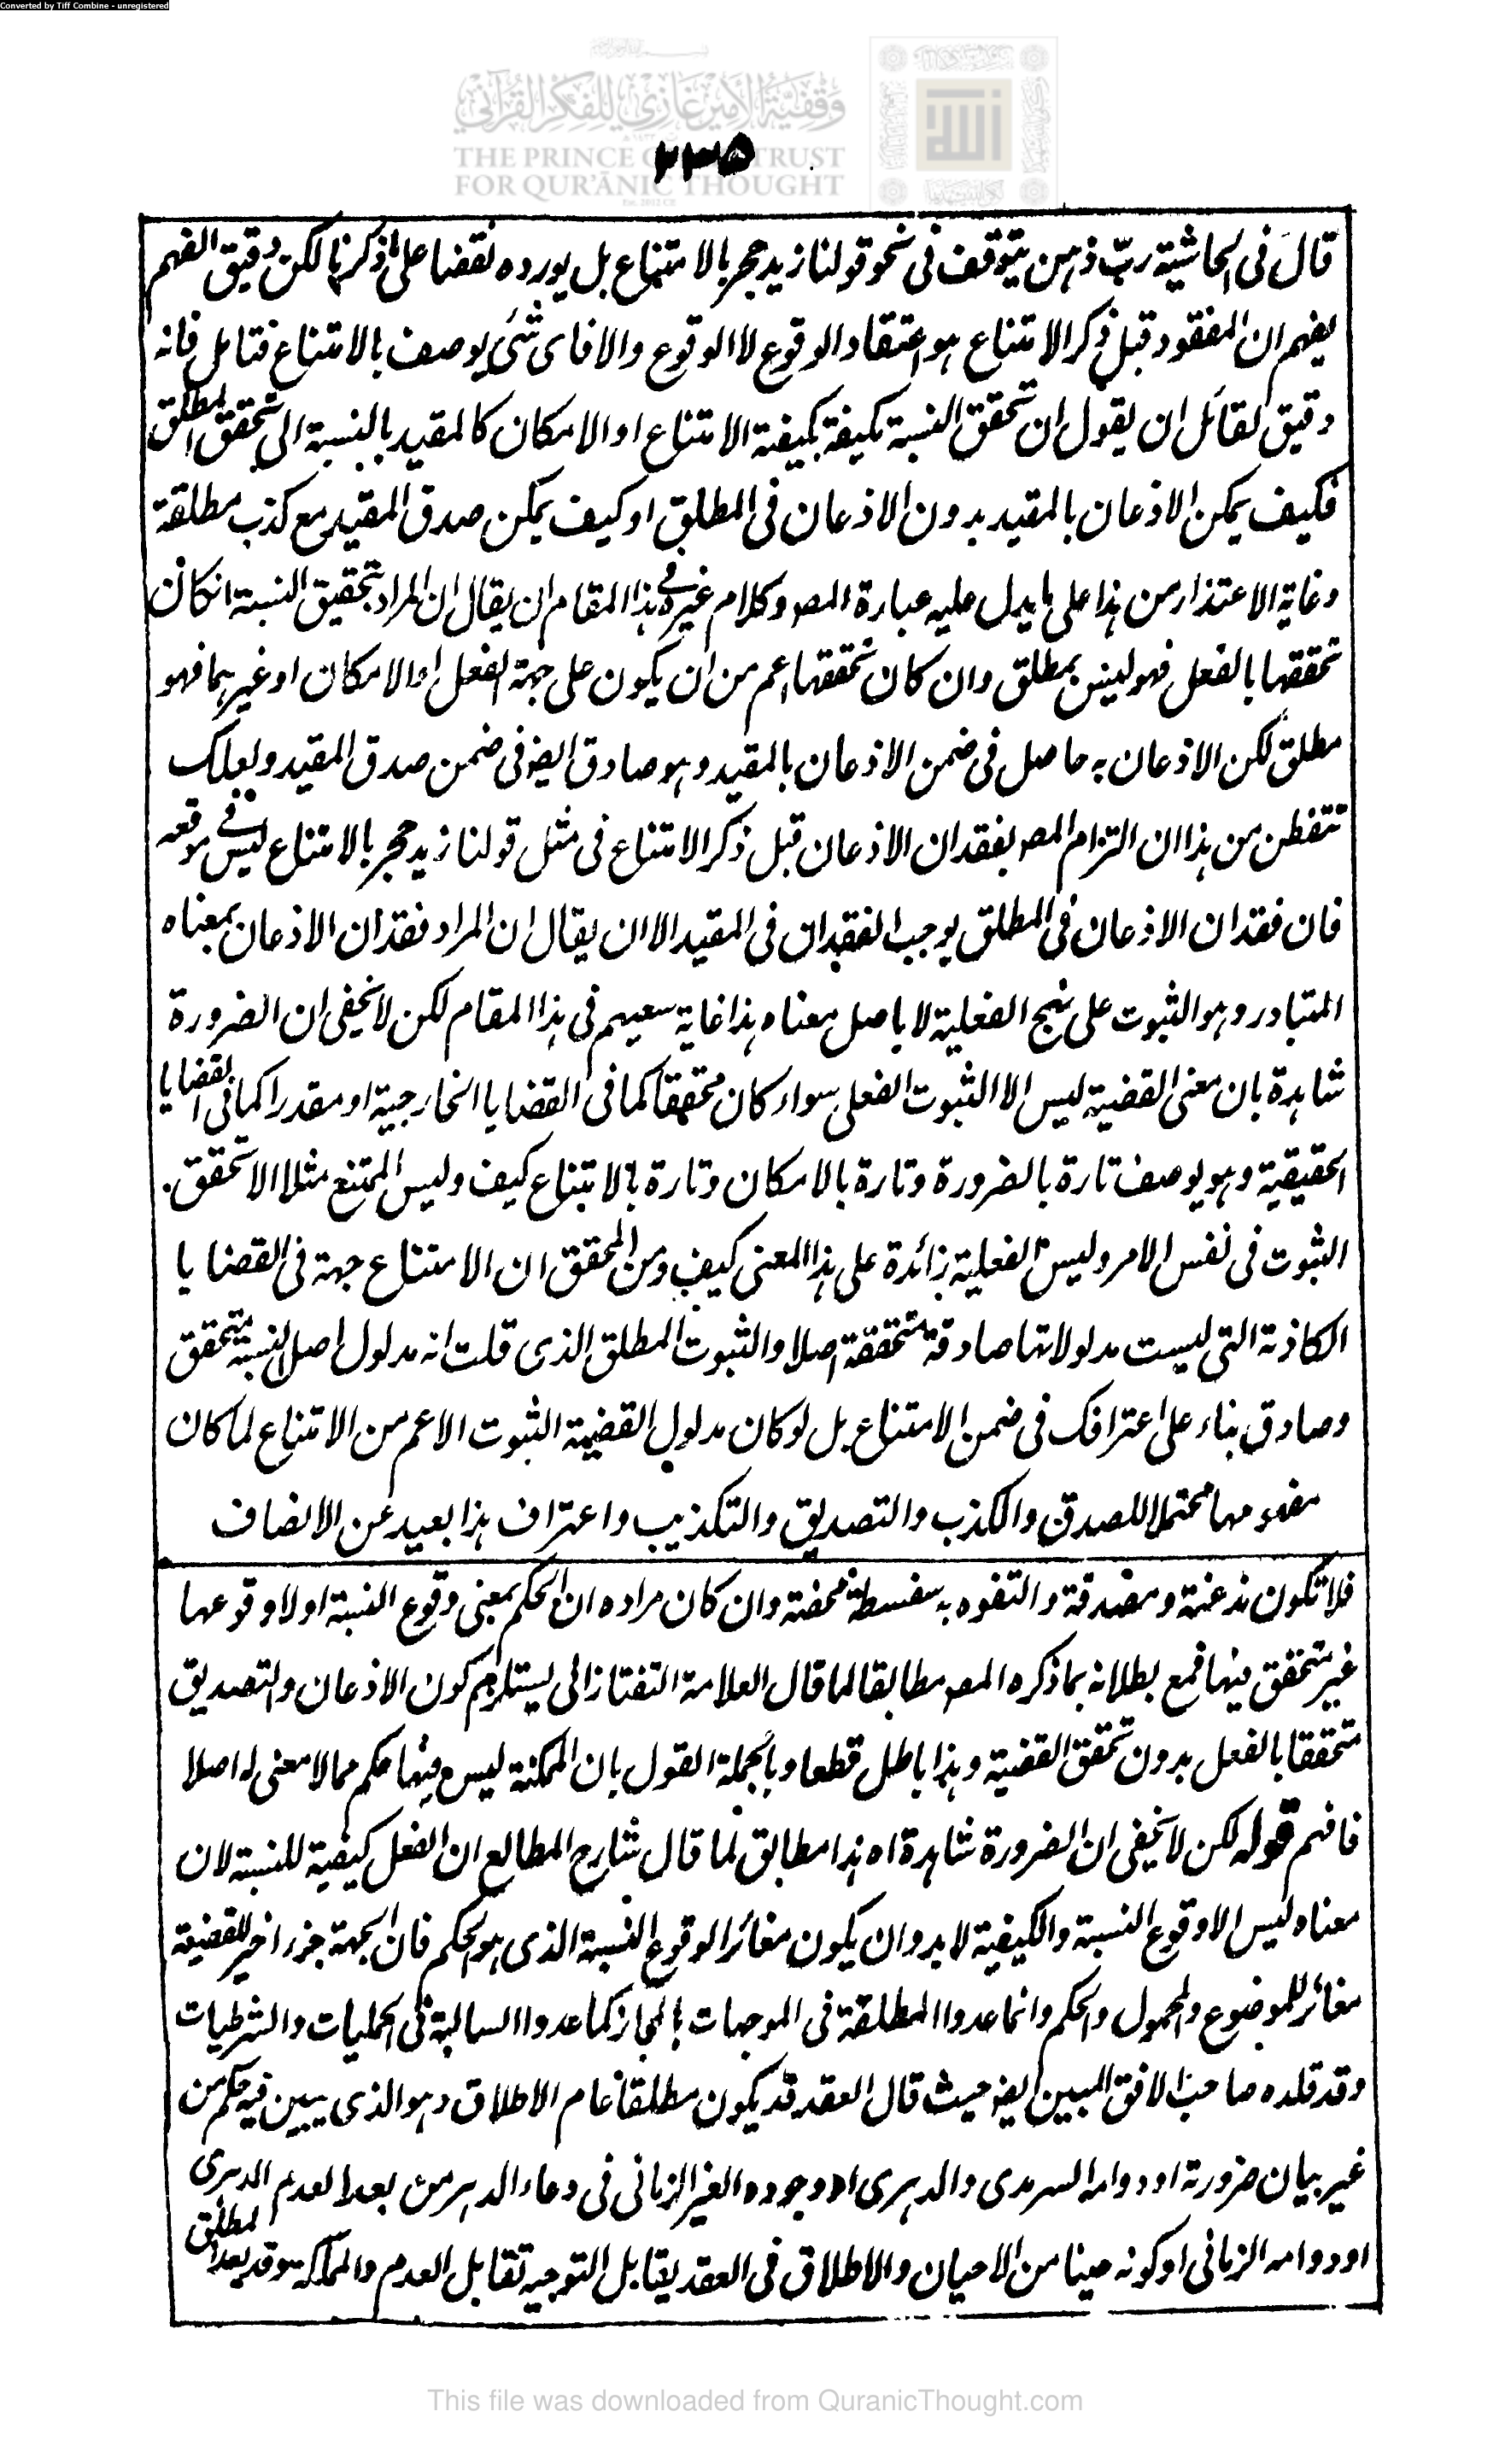 Converted by Tiff Combine - unregistered
وقفية الأمير غازي للفكر القرآني
THE PRINCE TRUST
FOR QUR'ĀNIC THOUGHT
٢٣٥
قال فى الحاشية ربّ ذهن يتوقف فى نحو قولنا زيد حجر بالامتناع بل يورده نقضا على ما ذكرنا لكن دقيق الفهم
يفهم ان المفقود قبل ذكر الامتناع هو اعتقاد الوقوع لا الوقوع والا فاى شئ يوصف بالامتناع فتامل فانه
دقيق لقائل ان يقول ان تحقق النسبة مكيفة بكيفية الامتناع او الامكان كالمقيد بالنسبة الى تحقق المطلق
فكيف يمكن الاذعان بالمقيد بدون الاذعان فى المطلق او كيف يمكن صدق المقيد مع كذب مطلقة
وغاية الاعتذار من هذا على ما يدل عليه عبارة المصـ وكلام غيره فى هذا المقام ان يقال ان المراد بتحقيق النسبة انكان
تحققها بالفعل فهو ليس بمطلق وان كان تحققها اعم من ان يكون على جهة الفعل او الامكان او غيرهما فهو
مطلق لكن الاذعان به حاصل فى ضمن الاذعان بالمقيد وهو صادق ايضـ فى ضمن صدق المقيد ولعلك
تتفطن من هذا ان التزام المصـ بفقدان الاذعان قبل ذكر الامتناع فى مثل قولنا زيد حجر بالامتناع ليس فى موقعه
فان فقدان الاذعان فى المطلق يوجب الفقدان فى المقيد الا ان يقال ان المراد فقدان الاذعان بمعناه
المتبادر وهو الثبوت على نهج الفعلية لا باصل معناه هذا غاية سعيهم فى هذا المقام لكن لا يخفى ان الضرورة
شاهدة بان معنى القضية ليس الا الثبوت الفعلى سواء كان محققا كما فى القضايا الخارجية او مقدرا كما فى القضايا
الحقيقية وهو يوصف تارة بالضرورة وتارة بالامكان وتارة بالامتناع كيف وليس الممتنع مثلا الا تحقق
الثبوت فى نفس الامر وليس الفعلية زائدة على هذا المعنى كيف ومن المحقق ان الامتناع جهة فى القضايا
الكاذبة التى ليست مدلولاتها صادقة متحققة اصلا والثبوت المطلق الذى قلت انه مدلول اصل النسبة متحقق
وصادق بناء على اعترافك فى ضمن الامتناع بل لو كان مدلول القضية الثبوت الاعم من الامتناع لما كان
مفهومها محتملا للصدق والكذب والتصديق والتكذيب واعتراف هذا بعيد عن الانصاف
فلا تكون مذعنة ومصدقة والتفوه به سفسطة محضة وان كان مراده ان الحكم بمعنى وقوع النسبة او لا وقوعها
غير متحقق فيها فمع بطلانه بما ذكره المصـ مطابقا لما قال العلامة التفتازانى يستلزم كون الاذعان والتصديق
متحققا بالفعل بدون تحقق القضية وهذا باطل قطعا وبالجملة القول بان الممكنة ليس فيها حكم مما لا معنى له اصلا
فافهم قوله لكن لا يخفى ان الضرورة شاهدة اه هذا مطابق لما قال شارح المطالع ان الفعل كيفية للنسبة لان
معناه ليس الا وقوع النسبة والكيفية لا بد وان يكون مغائرا لوقوع النسبة الذى هو الحكم فان الجهة جزء اخير للقضية
مغائر للموضوع والمحمول والحكم وانما عدوا المطلقة فى الموجهات بالمجاز كما عدوا السالبة فى الحمليات والشرطيات
وقد قلده صاحب الافق المبين ايضـ حيث قال العقد قد يكون مطلقا عام الاطلاق وهو الذى يبين فيه حكم من
غير بيان ضرورة او دوامه السرمدى والدهرى او وجوده الغير الزمانى فى وعاء الدهر من بعد العدم الدهرى
او دوامه الزمانى او كونه حينا من الاحيان والاطلاق فى العقد يقابل التوجيه تقابل العدم والملكة وقد يعد المطلق
This file was downloaded from QuranicThought.com